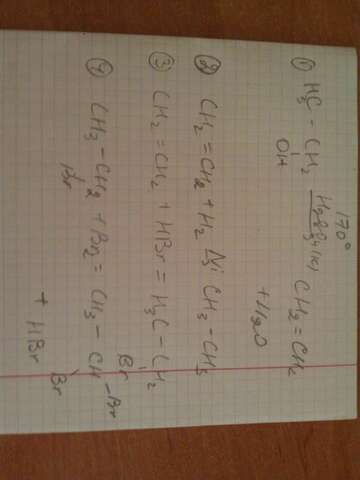 170°
① H3C - CH2 H2SO4(к) CH2=CH2
OH + H2O
② CH2=CH2+H2 Ni CH3-CH3
③ CH2=CH2+HBr=H3C-CH2
Br
④ CH3-CH2+Br2=CH3-CH-Br
Br Br
+ HBr